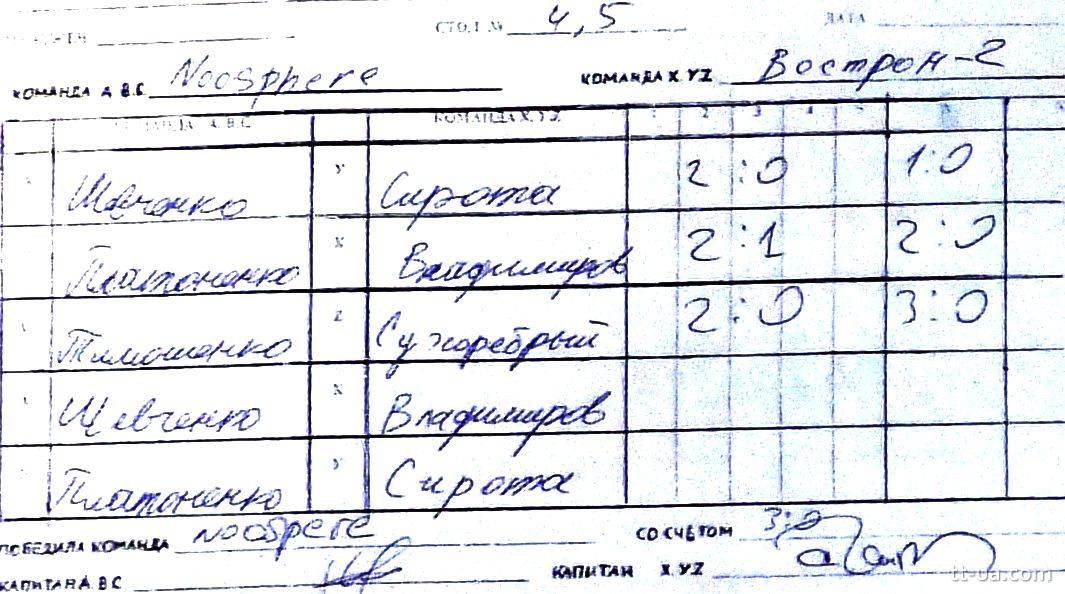 СТОЛ № 4,5 ДАТА
КОМАНДА А.В.С. Noosphere КОМАНДА X.YZ Вострон-2
КОМАНДА А.В.С КОМАНДА X.YZ 1 2 3 4 5
Шевченко У Сирота 2:0 1:0
Платоненко X Владимиров 2:1 2:0
Тимошенко Z Сухоребрый 2:0 3:0
Шевченко X Владимиров
Платоненко У Сирота
ПОБЕДИЛА КОМАНДА Noospere СО СЧЕТОМ 3:0
КАПИТАН А.ВС КАПИТАН X.YZ
tt-ua.com